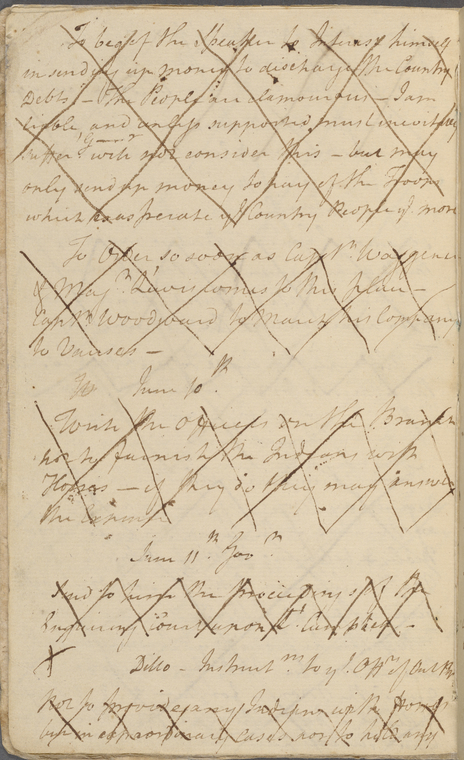 To beg of the Speaker to Interest himself
in sending up money to discharge the Country
Debts — The People are clamourous — I am
liable, and unless supported must inevitably
suffer. Govr will not consider this — but may
only send up money to pay of the Troops
which exasperate ye Country People ye more
To Order so soon as Captn Waggener
& Majr Lewis comes to this place —
Captn Woodward to March his Company
to Vauses —
June 10th
Write the Officers on the Branch
not to furnish the Indians with
Horses — if they do they may answer
the
June 11th Govr
Send to him the Proceedings of the
Enquiring Court upon Lt Campbell —
Ditto — Instructns to ye Offrs of
Not to provide any Indian with Horses
but in extraordinary cases nor to hold any